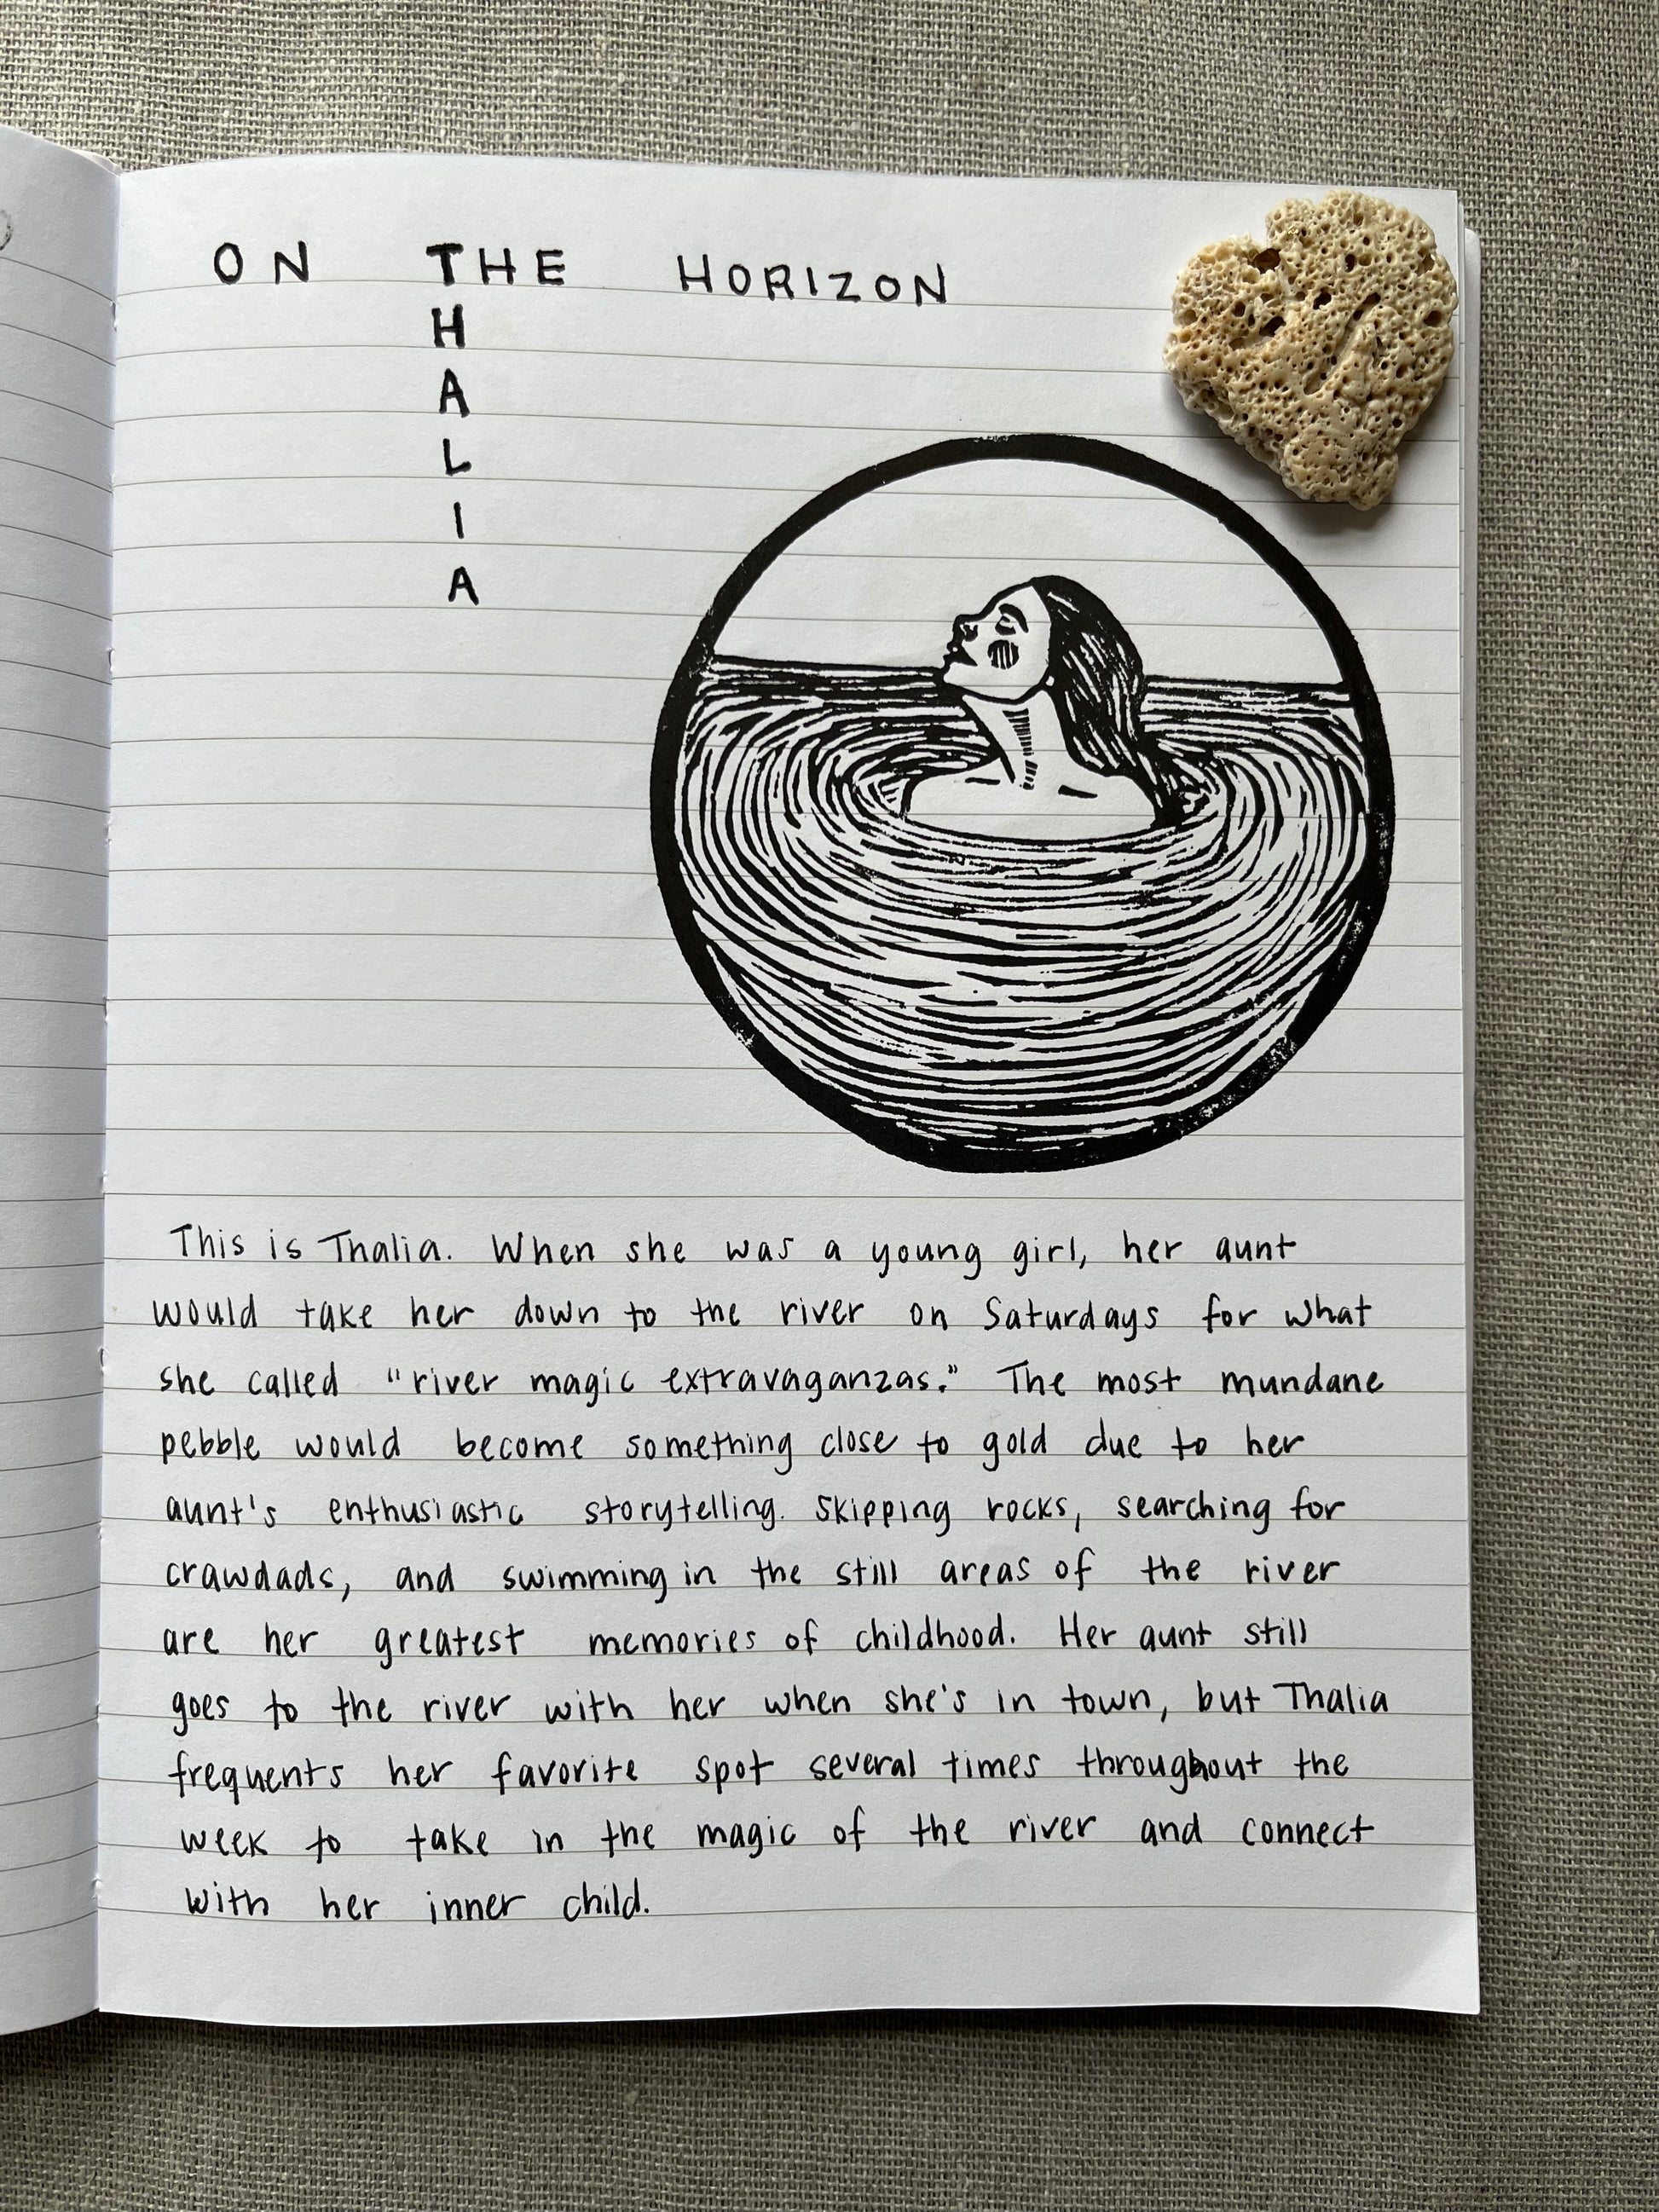 ON THE HORIZON
H
A
L
I
A
This is Thalia. When she was a young girl, her aunt
would take her down to the river on Saturdays for what
she called "river magic extravaganzas." The most mundane
pebble would become something close to gold due to her
aunt's enthusiastic storytelling. Skipping rocks, searching for
crawdads, and swimming in the still areas of the river
are her greatest memories of childhood. Her aunt still
goes to the river with her when she's in town, but Thalia
frequents her favorite spot several times throughout the
week to take in the magic of the river and connect
with her inner child.